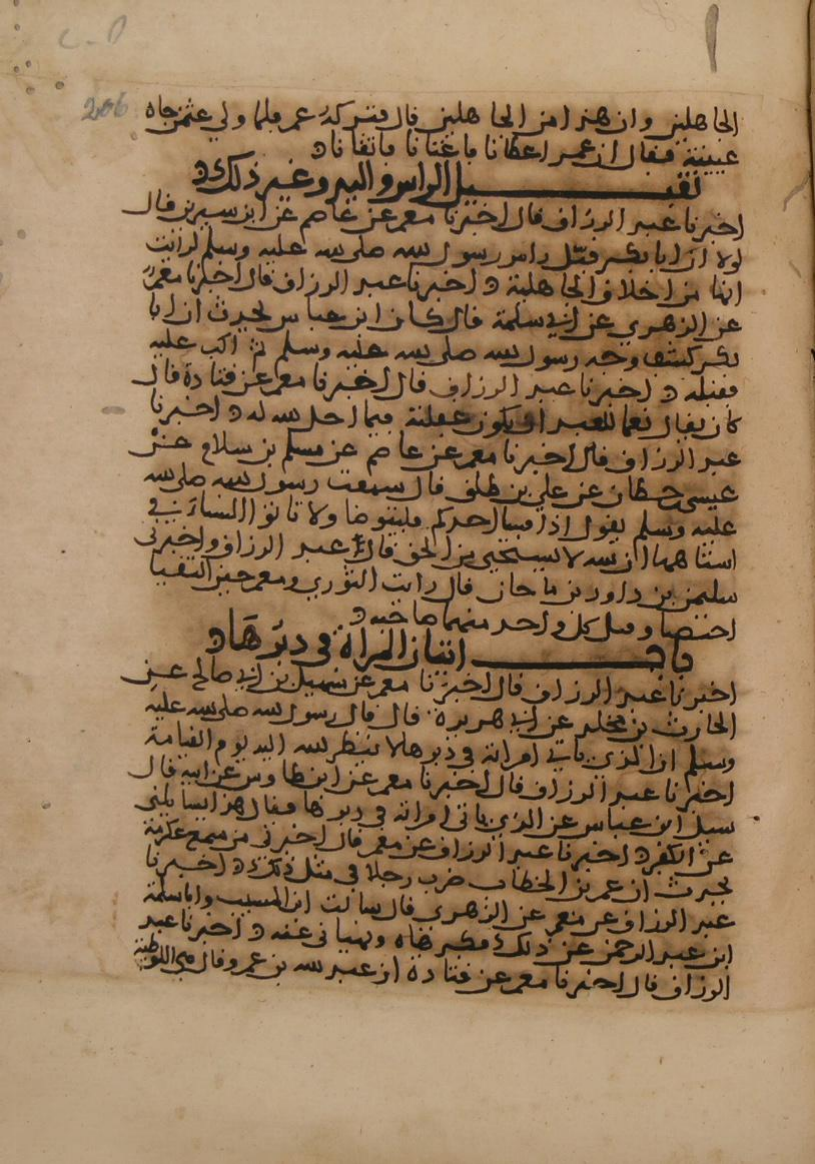 206
الجاهلين وان هذا من الجاهلين قال فتركه عمر فلما ولي عثمن جاه
عيينة فقال ان عمر اعطانا فاغنانا واتقانا ه
تقبيل الراس واليد وغير ذلك ه
اخبرنا عبد الرزاق قال اخبرنا معمر عن عاصم عن ابن سيرين قال
لولا ان ابا بكر قبل راس رسول الله صلى الله عليه وسلم لرايت
انها من اخلاق الجاهلية ه اخبرنا عبد الرزاق قال اخبرنا معمر
عن الزهري عن ابي سلمة قال كان ابن عباس يحدث ان ابا
بكر كشف وجه رسول الله صلى الله عليه وسلم ثم اكب عليه
فقبله ه اخبرنا عبد الرزاق قال اخبرنا معمر عن قتادة قال
كان يقال نعما للعبد ان يكون عقلته فيما احل الله له ه اخبرنا
عبد الرزاق قال اخبرنا معمر عن عاصم عن مسلم بن سلام عن
عيسى حطان عن علي بن طلق قال سمعت رسول الله صلى الله
عليه وسلم يقول اذا فسا احدكم فليتوضا ولا تاتوا النساء في
استاههن ان الله لا يستحيي من الحق قال عبد الرزاق واخبرني
سليمن بن داود بن ماحان قال رايت الثوري ومعمر حين التقيا
احتضنا وقبل كل واحد منهما صاحبه ه
باب اتيان المراة في دبرها ه
اخبرنا عبد الرزاق قال اخبرنا معمر عن سهيل بن ابي صالح عن
الحارث بن مخلد عن ابي هريرة قال قال رسول الله صلى الله عليه
وسلم ان الذي ياتي امراته في دبرها لا ينظر الله اليه يوم القيامة
اخبرنا عبد الرزاق قال اخبرنا معمر عن ابن طاوس عن ابيه قال
سيل ابن عباس عن الذي ياتي امراته في دبرها فقال هذا يسايلني
عن الكفر ه اخبرنا عبد الرزاق عن معمر قال اخبرني من سمع عكرمة
يحدث ان عمر بن الخطاب ضرب رجلا في مثل ذلك ه اخبرنا
عبد الرزاق عن معمر عن الزهري قال سالت ابن المسيب وابا سلمة
ابن عبد الرحمن عن ذلك فكرهاه ونهياني عنه ه اخبرنا عبد
الرزاق قال اخبرنا معمر عن قتادة ان عبد الله بن عمرو قال هي اللوطية